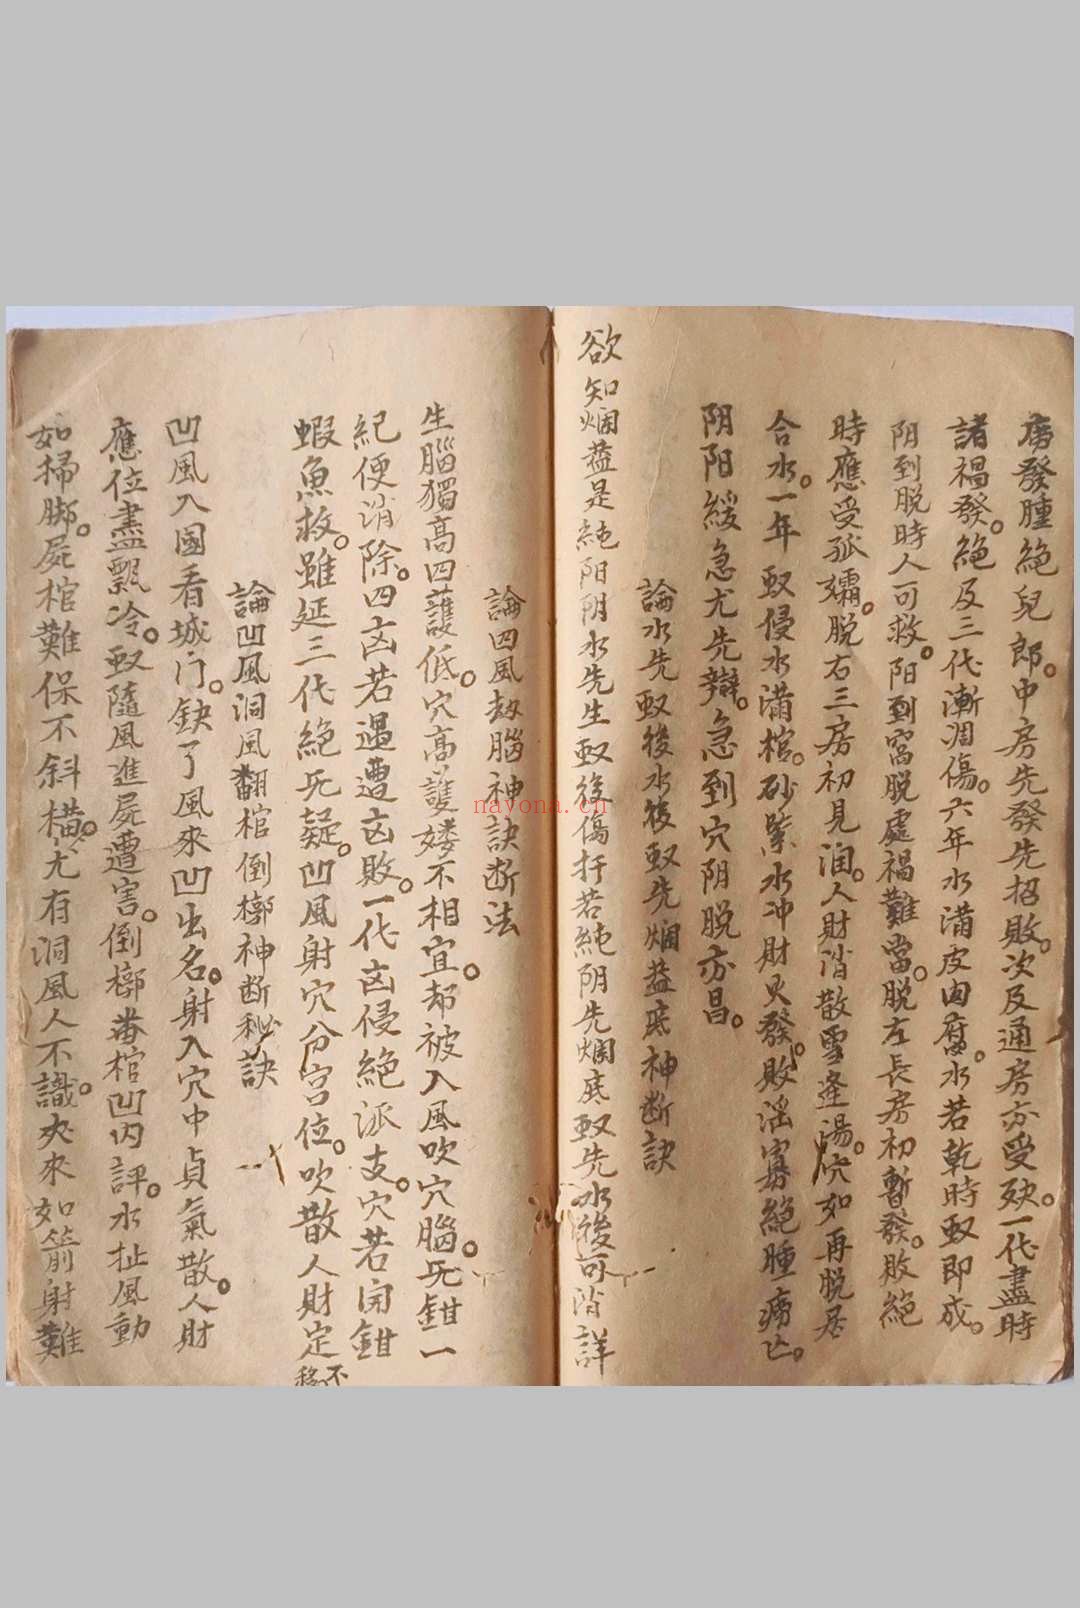 癆發腫絕兒郎。中房先發先招敗。次及通房亦受殃。一代盡時
諸禍發。絕及三代漸凋傷。六年水滿皮肉腐。水若乾時蚁即成。
阴到脱時人可救。阳到窩脱處禍難當。脱左長房初暫發。敗絕
時應受孤孀。脱右三房初見润。人財消散雪逢湯。穴如再脱居
合水。一年蚁侵水滿棺。砂縈水冲財又發。敗淫寡絕腫癆亡。
阴阳緩急尤先辯。急到穴阴脱亦昌。
論水先蚁後水後蚁先爛蓋底神断訣
欲知爛蓋是純阳阴水先生蚁後傷扦若純阴先爛底蚁先水後可消詳
論四風劫腦神訣断法
生腦獨高四護低。穴高護矮不相宜。却被入風吹穴腦。旡鉗一
紀便消除。四凶若遇遭凶敗。一代凶侵絕派支。穴若開鉗
蝦魚救。雖延三代絕旡疑。凹風射穴分宫位。吹散人財定不移
論凹風洞風翻棺倒槨神断秘訣
凹風入國看城门。鈌了風來凹出名。射入穴中貞氣散。人財
應位盡飄冷。蚁隨風進屍遭害。倒槨番棺凹内評。水扯風動
如掃脚。屍棺難保不斜横。尤有洞風人不識。夾來如箭射難
nayona.cn